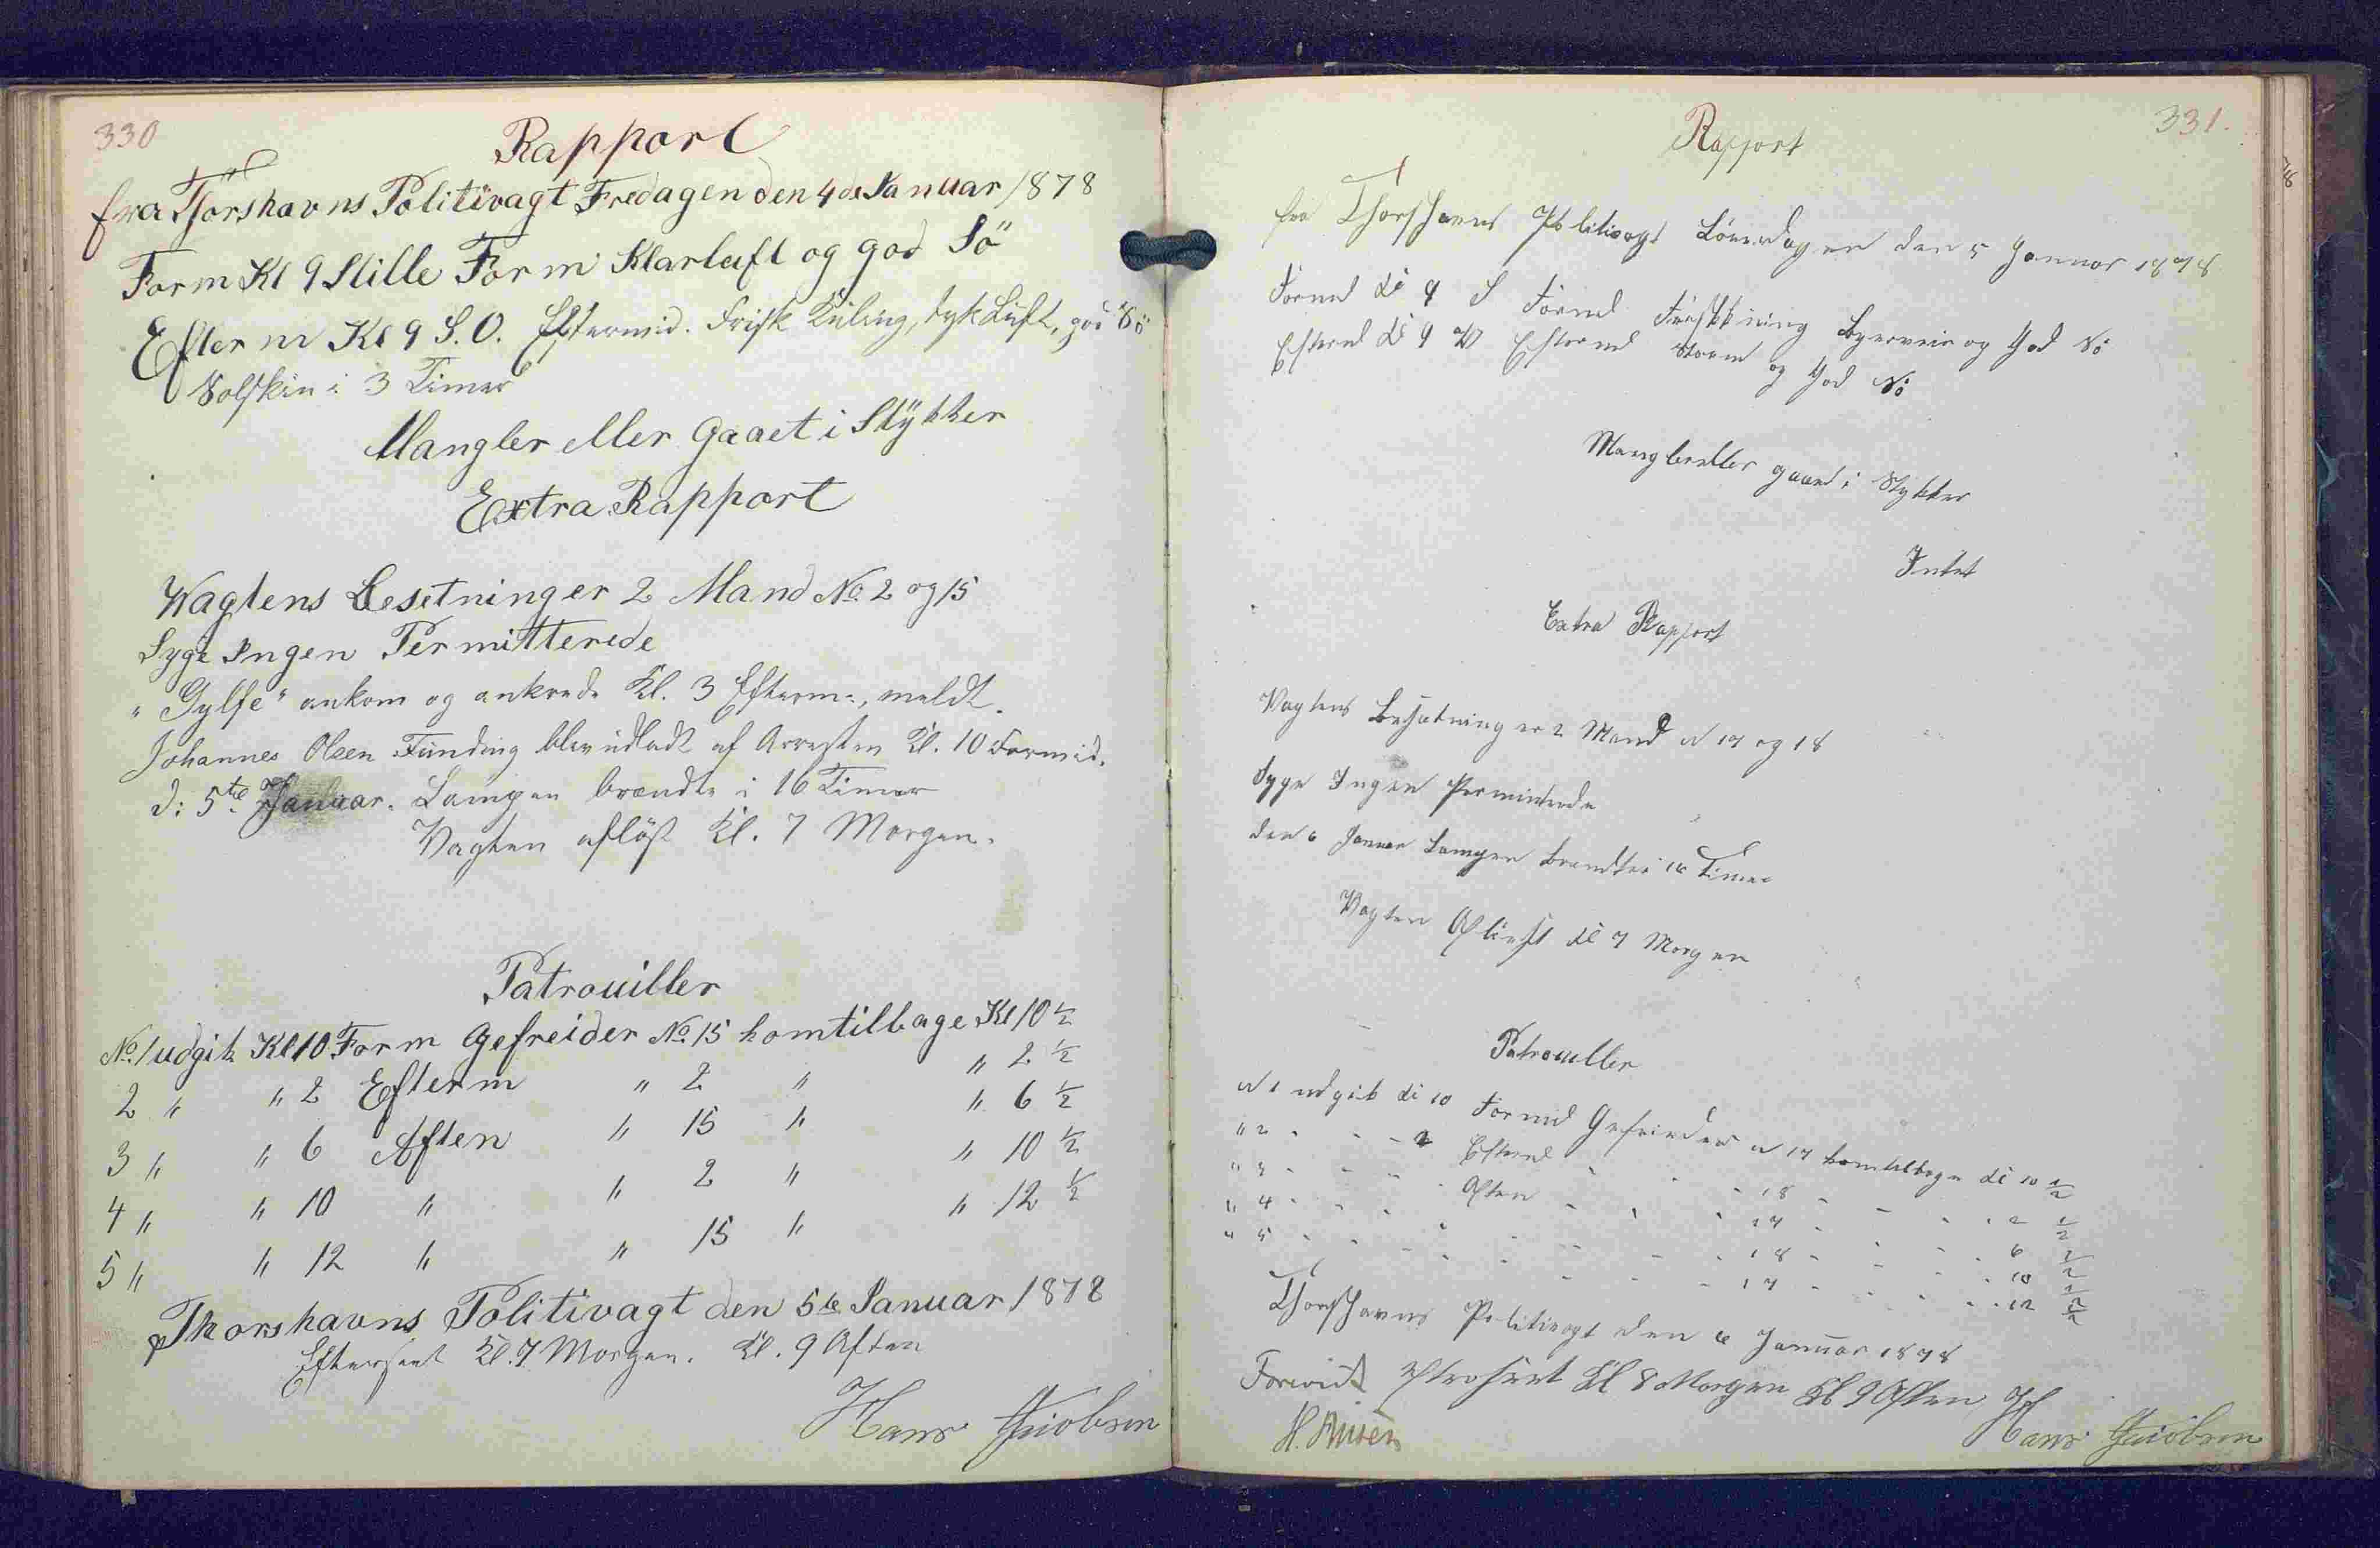 330
Rapport
fra Thorshavns Politivagt Fredagen den 4de Januar 1878
Form Kl 9 Stille Form Klarluft og god Sö
Efterm Kl 9 S.O. Eftermid. Frisk Kuling, tyk Luft, god Sö
Solskin i 3 Timer
Mangler eller Gaaet i Stÿkker
Extra Rapport
Wagtens Besetning er 2 Mand No. 2 og 15
Syge Ingen Permitterede
"Gylfe" ankom og ankrede Kl. 3 Efterm:, meldt.
Johannes Olsen Funding blev udladt af Arresten Kl. 10 Formid.
d: 5te Januar. Lampen brændte i 16 Timer
Vagten aflöst Kl. 7 Morgen.
Patrouiller
No. 1 udgik Kl 10 Form Gefreider No. 15 komtilbage Kl 10 1/2
2 " " 2 Efterm " 2 " " 2 1/2
3 " " 6 Aften " 15 " " 6 1/2
4 " " 10 " " 2 " " 10 1/2
5 " " 12 " " 15 " " 12 1/2
Thorshavns Politivagt den 5te Januar 1878
Efterseet Kl. 7 Morgen. Kl. 9 Aften
Hans Jacobsen
331.
Rapport
fra Thorshavns Politivagt Löverdagen den 5 Januar 1878
Formd Kl 9 S Formd Byerveir og God Sö
Eftermd Kl 9 W Eftermd Storm og God Sö
Mangler eller gaaed i Stykker
Intet
Extra Rapport
Vagtens Besætning er 2 Mand N 17 og 18
Syge Ingen Permitterede
den 6 Januar Lampen brændte i 16 Timer
Vagten Aflöst Kl 7 Morgen
Patrouller
N 1 udgik Kl 10 Formd Gefreider N 17 komtilbage Kl 10 1/2
" 2 - - - 2 Eftermd - - 18 - - - 2 1/2
" 3 - - - Aften - - 17 - - - 6 1/2
" 4 - - - - - - 18 - - - 10 1/2
" 5 - - - - - - 17 - - - 12 1/2
Thorshavns Politivagt den 6 Januar 1878
Forevist Efterseet Kl 8 Morgen Kl 9 Aften
Hans Jacobsen